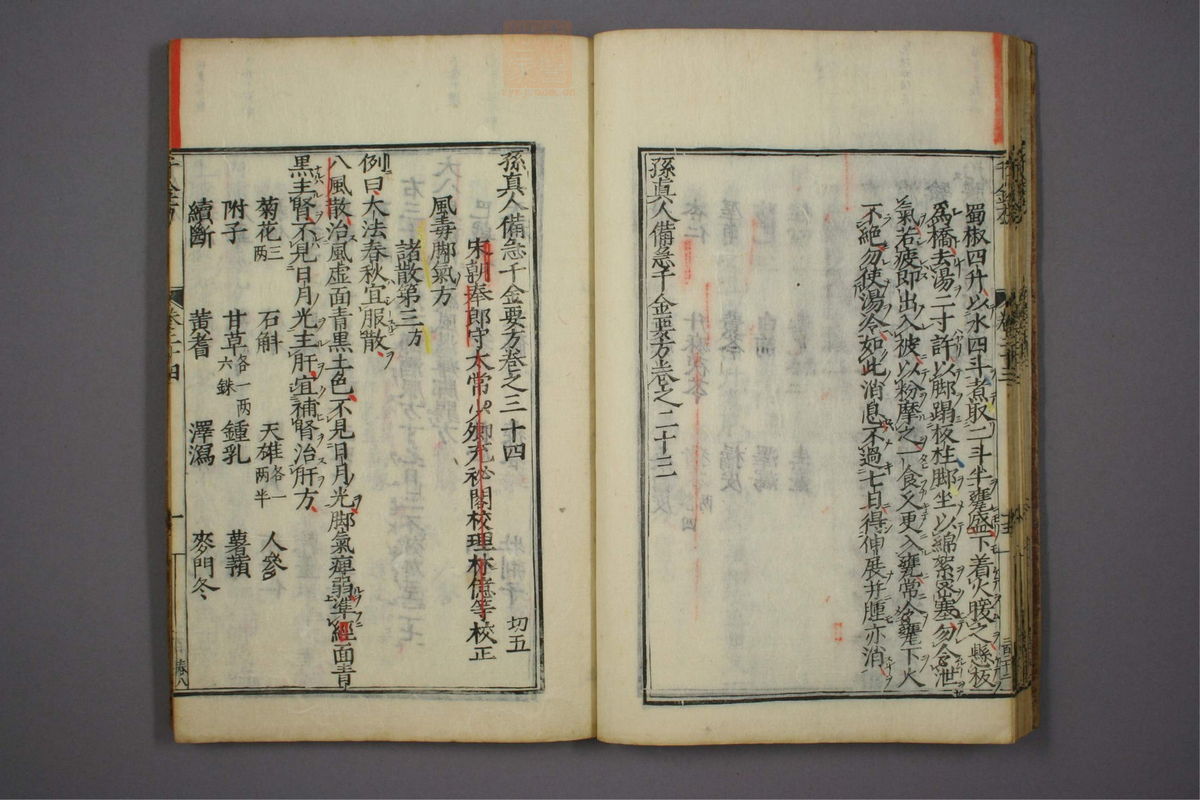 蜀椒四升以水四斗煮取二斗半甕盛下着火暖之懸板
爲橋去湯二寸許以脚蹋板柱脚坐以綿絮密塞勿令泄
氣若疲即出入被以粉摩之一食久更入甕常令甕下火
不絶勿使湯冷如此消息不過七日得伸展并腫亦消
孫真人備急千金要方卷之二十三
孫真人備急千金要方卷之二十四
切五
宋朝奉郎守太常少卿充祕閣校理林億等校正
風毒脚氣方
諸散第三方
例曰大法春秋宜服散
八風散治風虛面青黑土色不見日月光脚氣痺弱準經面青
黑主腎不見日月光主肝宜補腎治肝方
菊花三兩 石斛 天雄各一兩半 人參
附子 甘草各一兩六銖 鍾乳 薯蕷
續斷 黃耆 澤瀉 麥門冬